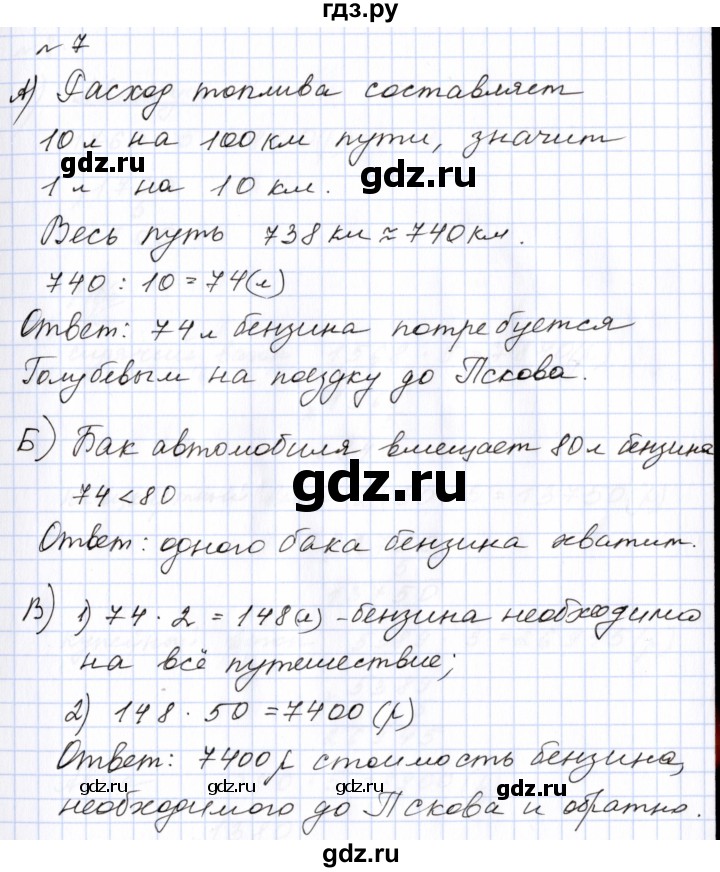 гдз.ру
№ 7
А) Расход топлива составляет
10 л на 100 км пути, значит
gdz.ru
gdz.ru
1 л на 10 км.
Весь путь 738 км ≈ 740 км.
740 : 10 = 74 (л)
Ответ: 74 л бензина потребуется
Голубевым на поездку до Пскова.
Б) Бак автомобиля вмещает 80 л бензина
gdz.ru
gdz.ru
74 < 80
Ответ: одного бака бензина хватит.
gdz.ru
gdz.ru
В) 1) 74 · 2 = 148 (л) - бензина необходимо
на всё путешествие;
2) 148 · 50 = 7400 (р)
Ответ: 7400 р стоимость бензина,
gdz.ru
gdz.ru
gdz.ru
необходимого до Пскова и обратно.
gdz.ru